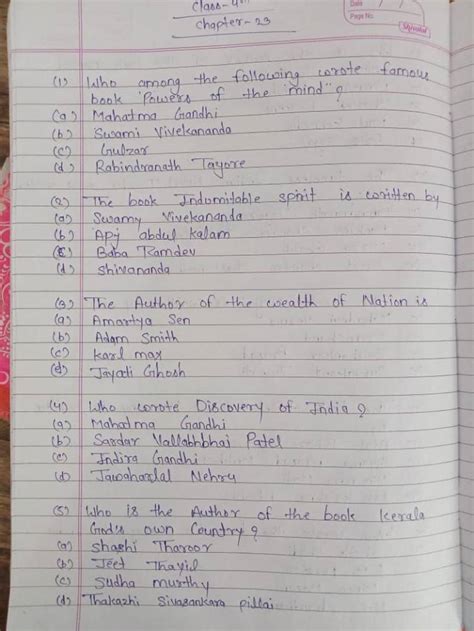 Class-4th
Chapter-23
Date / /
Page No.
Shivalal
(1) Who among the following wrote famous
book "Powers of the mind"?
(a) Mahatma Gandhi
(b) Swami Vivekananda
(c) Gulzar
(d) Rabindranath Tagore
(2) The book Indomitable spirit is written by
(a) Swamy Vivekananda
(b) Apj abdul kalam
(c) Baba Ramdev
(d) Shivananda
(3) The Author of the wealth of Nation is
(a) Amartya Sen
(b) Adam Smith
(c) karl max
(d) Jayati Ghosh
(4) Who wrote Discovery of India?
(a) Mahatma Gandhi
(b) Sardar Vallabhbhai Patel
(c) Indira Gandhi
(d) Jawaharlal Nehru
(5) Who is the Author of the book kerala
God's own Country?
(a) Shashi Tharoor
(b) Jeet Thayil
(c) Sudha murthy
(d) Thakazhi Sivasankara pillai